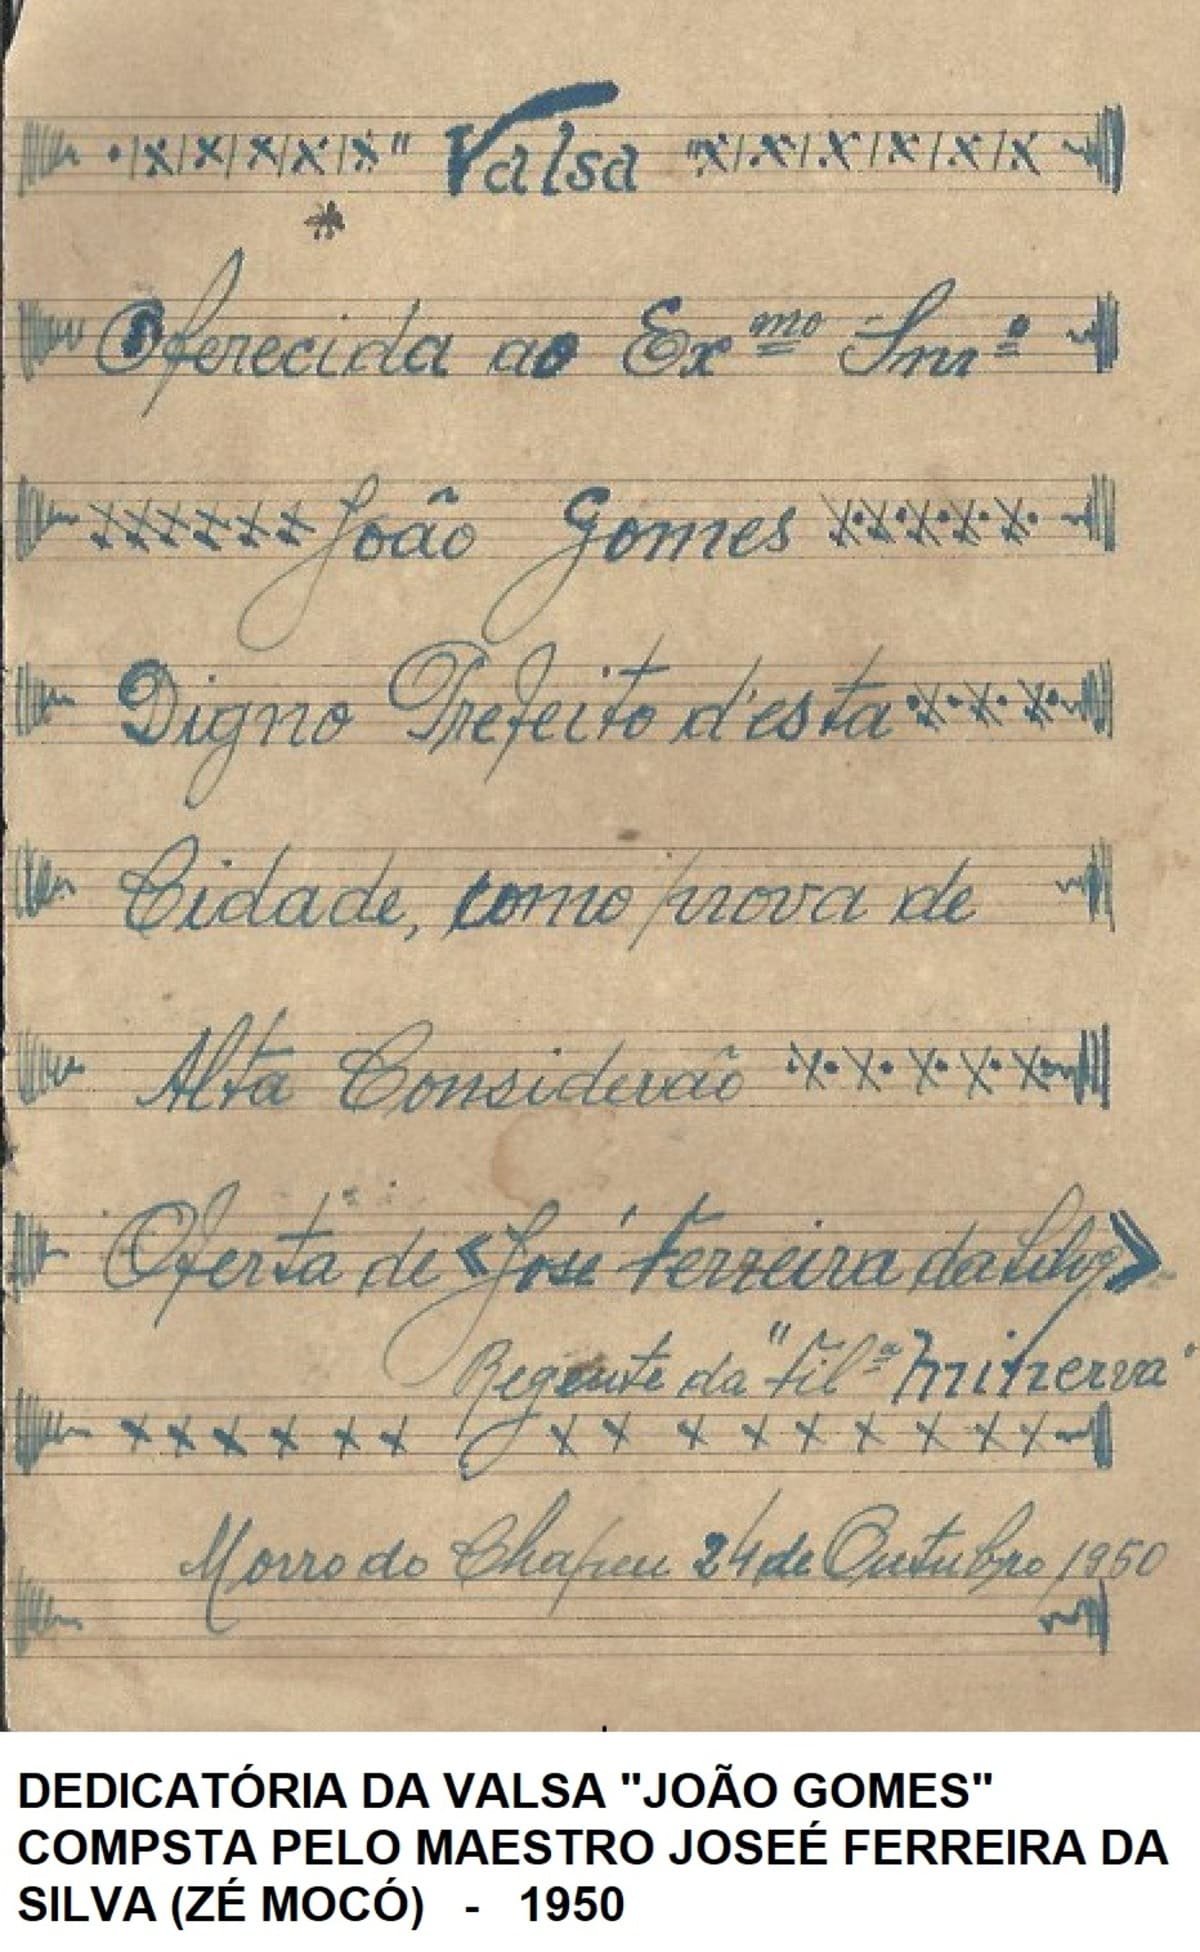 " Valsa "
Oferecida ao Exmo Snrº
João Gomes
Digno Prefeito d'esta
Cidade, como prova de
Alta Consideraão
Oferta de «José Ferreira da Silva»
Regente da "Filª Minerva"
Morro do Chapeu 24 de Outubro 1950
DEDICATÓRIA DA VALSA "JOÃO GOMES"
COMPSTA PELO MAESTRO JOSEÉ FERREIRA DA
SILVA (ZÉ MOCÓ) - 1950